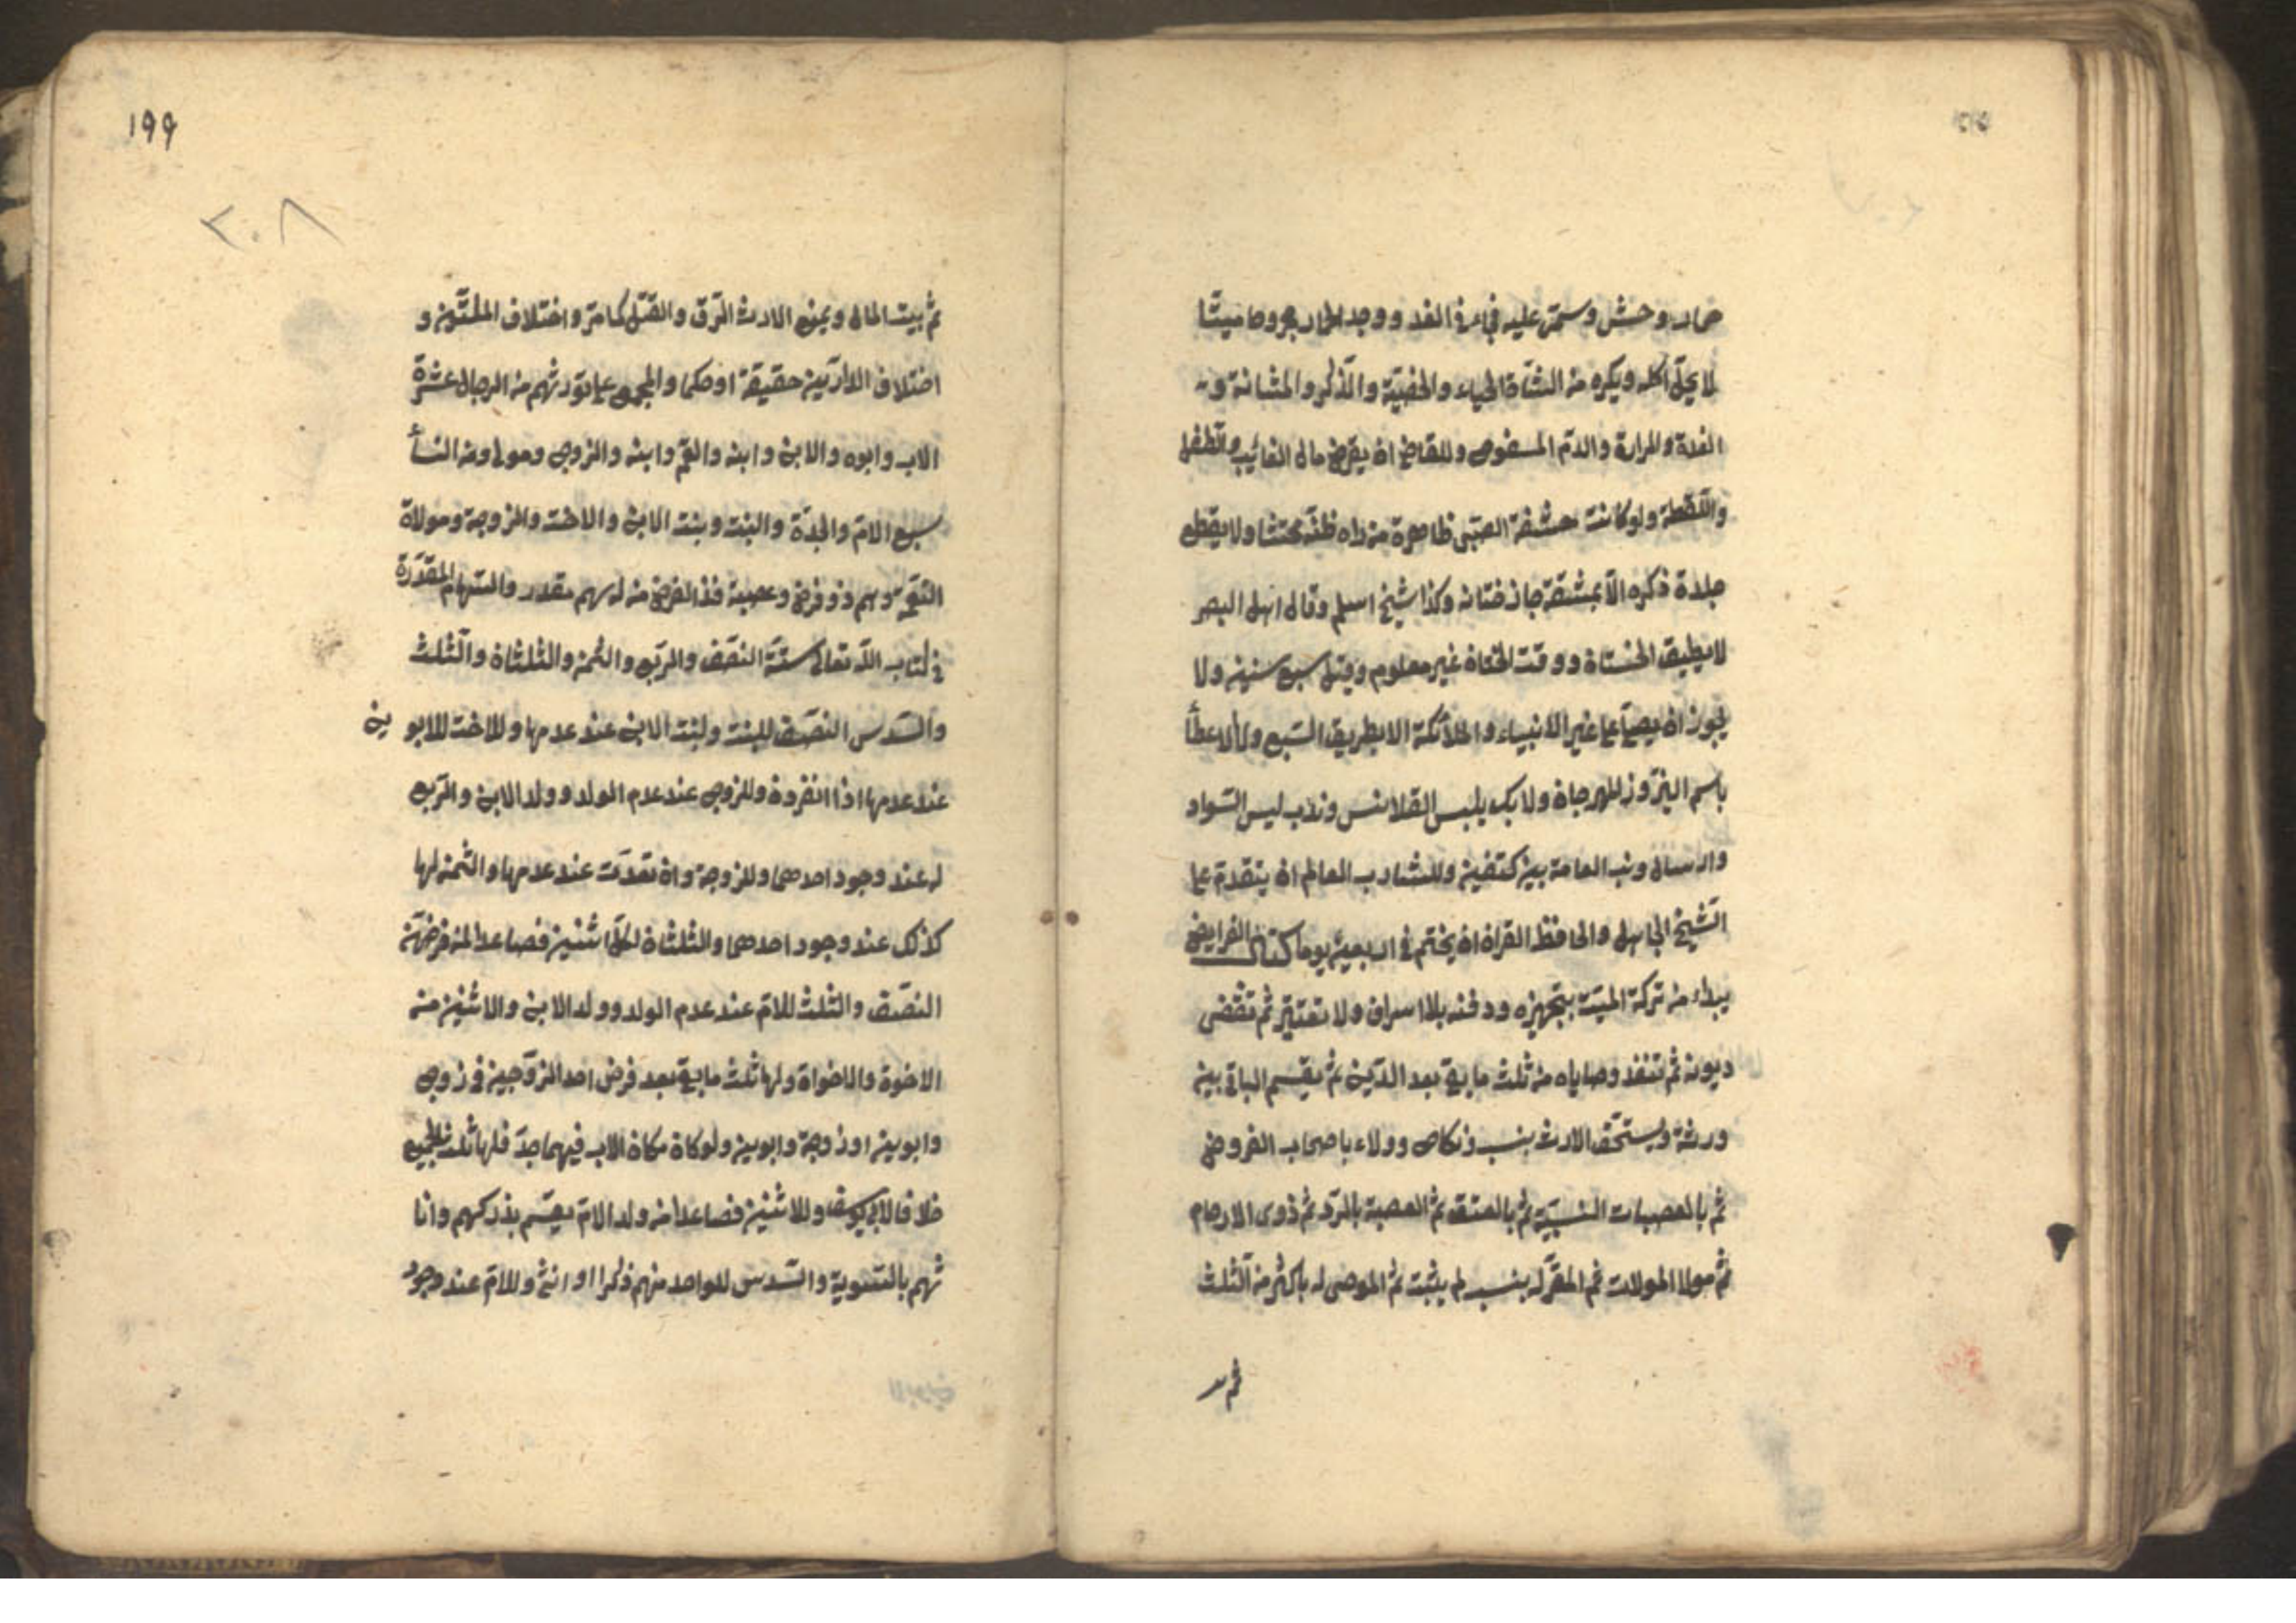 حمار وحش وسمى عليه فجاء في الغد ووجد الحمار مجروحا ميتا
لا يحل اكله ويكره من الشاة الحياء والخصية والذكر والمثانة و
الغدة والمرارة والدم المسفوح وللقاضي ان يقرض مال الغائب والطفل
واللقطة ولو كانت حشفة الصبى ظاهرة من راه ظنه مختنا ولا يقطع
جلدة ذكره الا بمشقة جاز ختانه وكذا شيخ اسلم وقال اهل البصر
لا يطيق الختان ووقت الختان غير معلوم وقيل سبع سنين ولا
يجوز ان يصلى على غير الانبياء والملائكة الا بطريق التبع ولا الاعطأ
باسم النيروز للمهرجان ولا بك يلبس القلانس وندب لبس السواد
وارسال ذنب العمامة بين كتفين وللشاب العالم ان يتقدم على
الشيخ الجاهل والحافظ القران ان يختم في اربعين يوما كتاب الفرايض
يبداء من تركة الميت بتجهيزه ودفنه بلا اسراف ولا تقتير ثم تقضى
ديونه ثم تنفذ وصاياه من ثلث ما بقى بعد الدين ثم يقسم الباقى بين
ورثة ويستحق الارث بنسب ونكاح وولاء باصحاب الفروض
ثم بالعصبات النسبية ثم بالمعتق ثم العصبة بالرد ثم ذوى الارحام
ثم مولا المولات ثم المقر له بنسب لم يثبت ثم الموصى له باكثر من الثلث
ثم
١٩٩
٢٠٨
ثم بيت المال ويمنع الارث الرق والقتل كما مر واختلاف الملتين و
اختلاف الدارين حقيقة او حكما والمجمع على توريثهم من الرجال عشرة
الاب وابوه والابن وابنه والعم وابنه والزوج ومولى ومن النسأ
سبع الام والجدة والبنت وبنت الابن والاخت والزوجة ومولاة
النعمة وهم ذو فرض وعصبة فذ الفرض من له سهم مقدر والسهام المقدرة
في كتاب الله تعالى ستة النصف والربع والثمن والثلثان والثلث
والسدس النصف للبنت ولبنت الابن عند عدمها وللاخت للابوين
عند عدمها اذا انفردن وللزوج عند عدم الولد وولد الابن والربع
له عند وجود احدهما وللزوجة وان تعددت عند عدمها والثمن لها
كذلك عند وجود احدهما والثلثان لكل اثنين فصاعدا لمن فرضهن
النصف والثلث للام عند عدم الولد وولد الابن والاثنين من
الاخوة والاخوات ولها ثلث ما بقى بعد فرض احد الزوجين في زوج
وابوين او زوجة وابوين ولو كان مكان الاب فيهما جد فلها ثلث الجميع
خلافا لابى يوسف وللاثنين فصاعدا من ولد الام يقسم بذكرهم وانا
ثهم بالتسوية والسدس للواحد منهم ذكرا او انثى وللام عند وجود